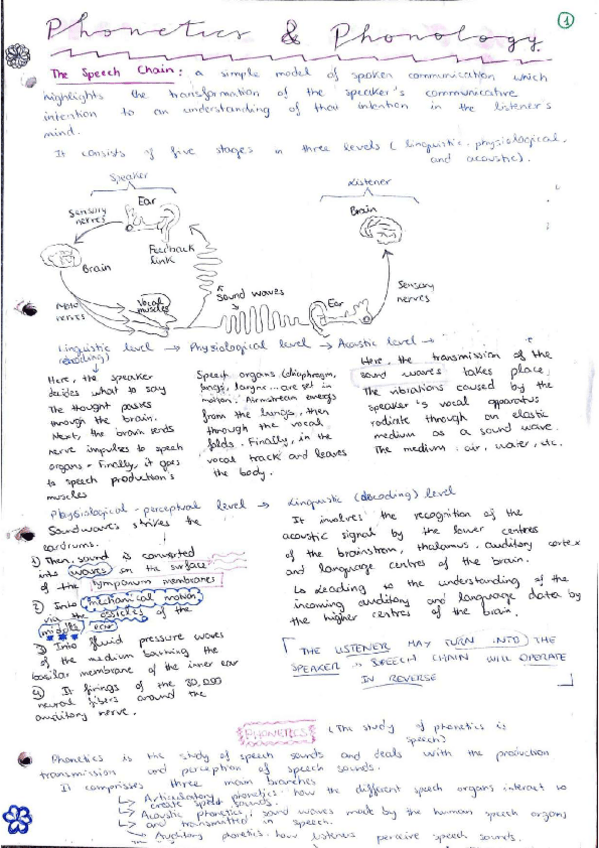 Phonetics & Phonology
1
The Speech Chain: a simple model of spoken communication which
highlights the transformation of the speaker's communicative
intention to an understanding of that intention in the listener's
mind.
It consists of five stages in three levels (linguistic, physiological,
and acoustic).
Speaker
Listener
Sensory
nerves
Ear
Brain
Feedback
link
Brain
Vocal
muscles
Sound waves
Ear
Sensory
nerves
nerves
Linguistic level → Physiological level → Acoustic level →
Here, the speaker
decides what to say
The thought passes
through the brain.
Next, the brain sends
nerve impulses to speech
organs. Finally, it goes
to speech production's
muscles
Speech organs (diaphragm,
lungs, larynx ... are set in
motion. Airstream emerges
from the lungs, then
through the vocal
folds. Finally, in the
vocal track and leaves
the body.
Here, the transmission of the
sound waves takes place,
The vibrations caused by the
speaker's vocal apparatus
radiate through an elastic
medium as a sound wave.
The medium: air, water, etc.
Physiological-perceptual level → Linguistic (decoding) level
Soundwaves strikes the
eardrums.
1) Then, sound is converted
into waves on the surface
of the tympanum membranes
2) Into mechanical motion
via the ossicles of the
middle ear
3) Into fluid pressure waves
of the medium bathing the
basilar membrane of the inner ear
4) It firings of the 30,000
neural fibers around the
auditory nerve.
It involves the recognition of the
acoustic signal by the lower centres
of the brainstem, thalamus, auditory cortex
and language centres of the brain.
↳ Leading to the understanding of the
incoming auditory and language data by
the higher centres of the brain.
THE LISTENER MAY TURN INTO THE
SPEAKER → SPEECH CHAIN WILL OPERATE
IN REVERSE
PHONETICS (The study of phonetics is
speech)
Phonetics is the study of speech sounds and deals with the production
transmission and perception of speech sounds.
It comprises three main branches
↳ Articulatory phonetics: how the different speech organs interact to
create speech sounds.
↳ Acoustic phonetics, sound waves made by the human speech organs
and transmitted in speech.
Auditory phonetics: how listeners perceive speech sounds.